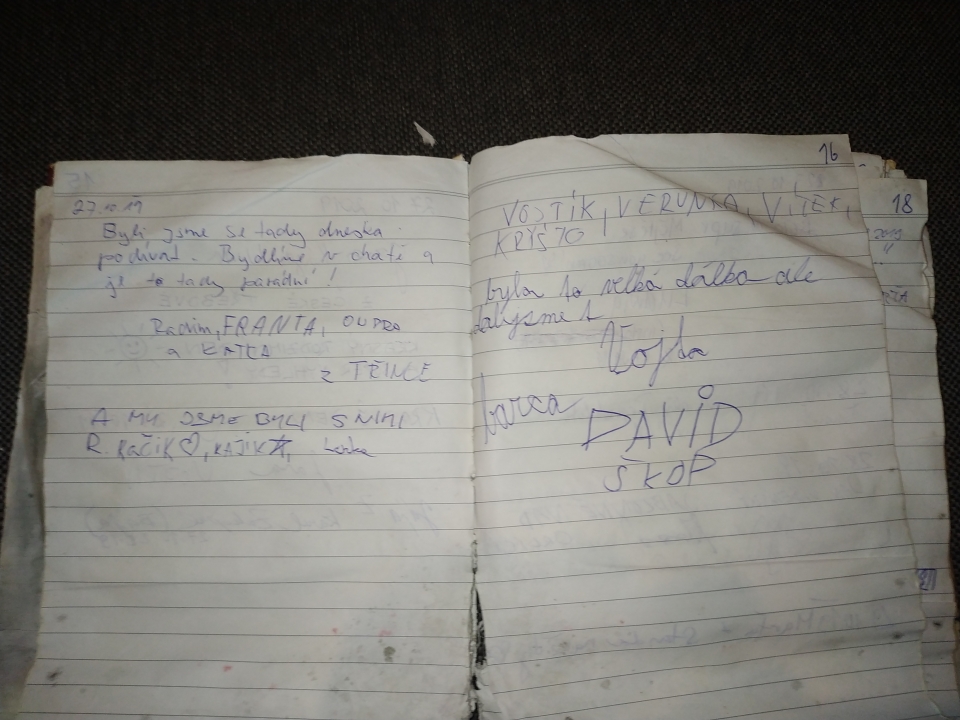 27.10.19
Byli jsme se tady dneska
podívat. Bydlíme v chatě a
je to tady parádní!
Radim, FRANTA, ONDRA
a KATKA
z TŘINCE
A MY JSME BYLI S NIMI
R. KAČIK♡, KAJIK☆, Lenka
16
VOJTÍK, VERUNKA, VÍTEK,
KRYŠTO
byla to velká dálka ale
dalysme 1
Vojta
barca
DAVID
ŠKOP
18
2019